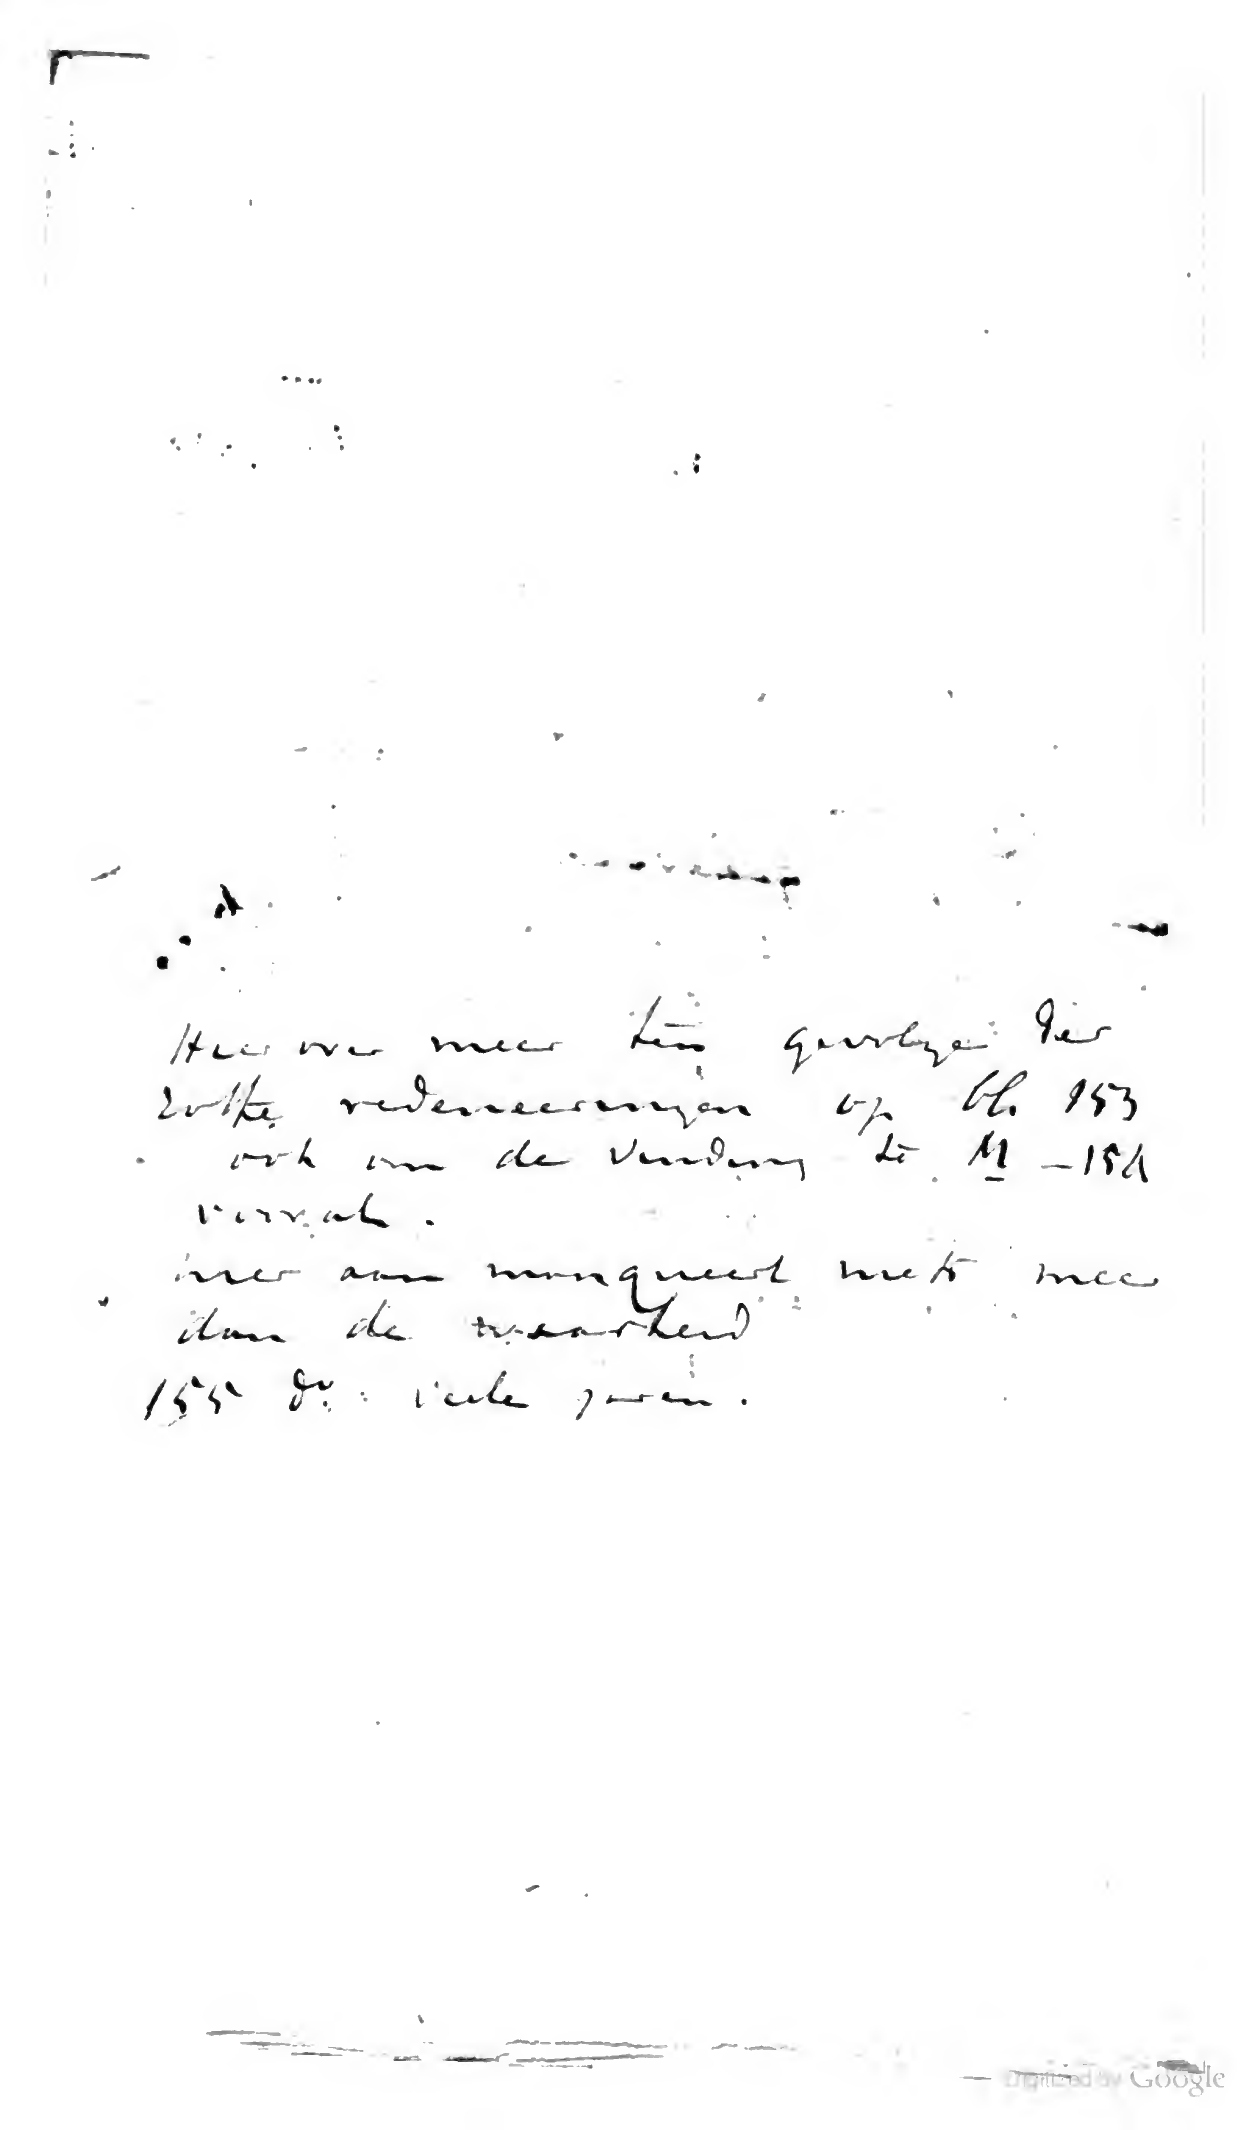 Hier over meer ten gevolge der
zotte redeneeringen op bl. 153
ook om de vinding te M – 154
vervat.
hier aan manqueert niets meer
dan de waarheid
155 dr. : veele jaren.
Digitized by Google